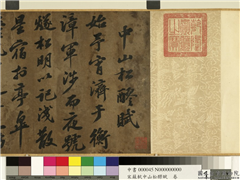 中山松醪賦
始予宵濟于衡
漳軍涉而夜號
燧松明以記淺散
星宿於亭皋
000045 N000000000
宋蘇軾中山松醪賦 卷